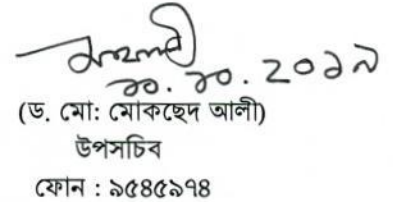 ২০১৯
(ড. মো: মোকছেদ আলী)
উপসচিব
ফোন : ৯৫৪৫৯৭৪